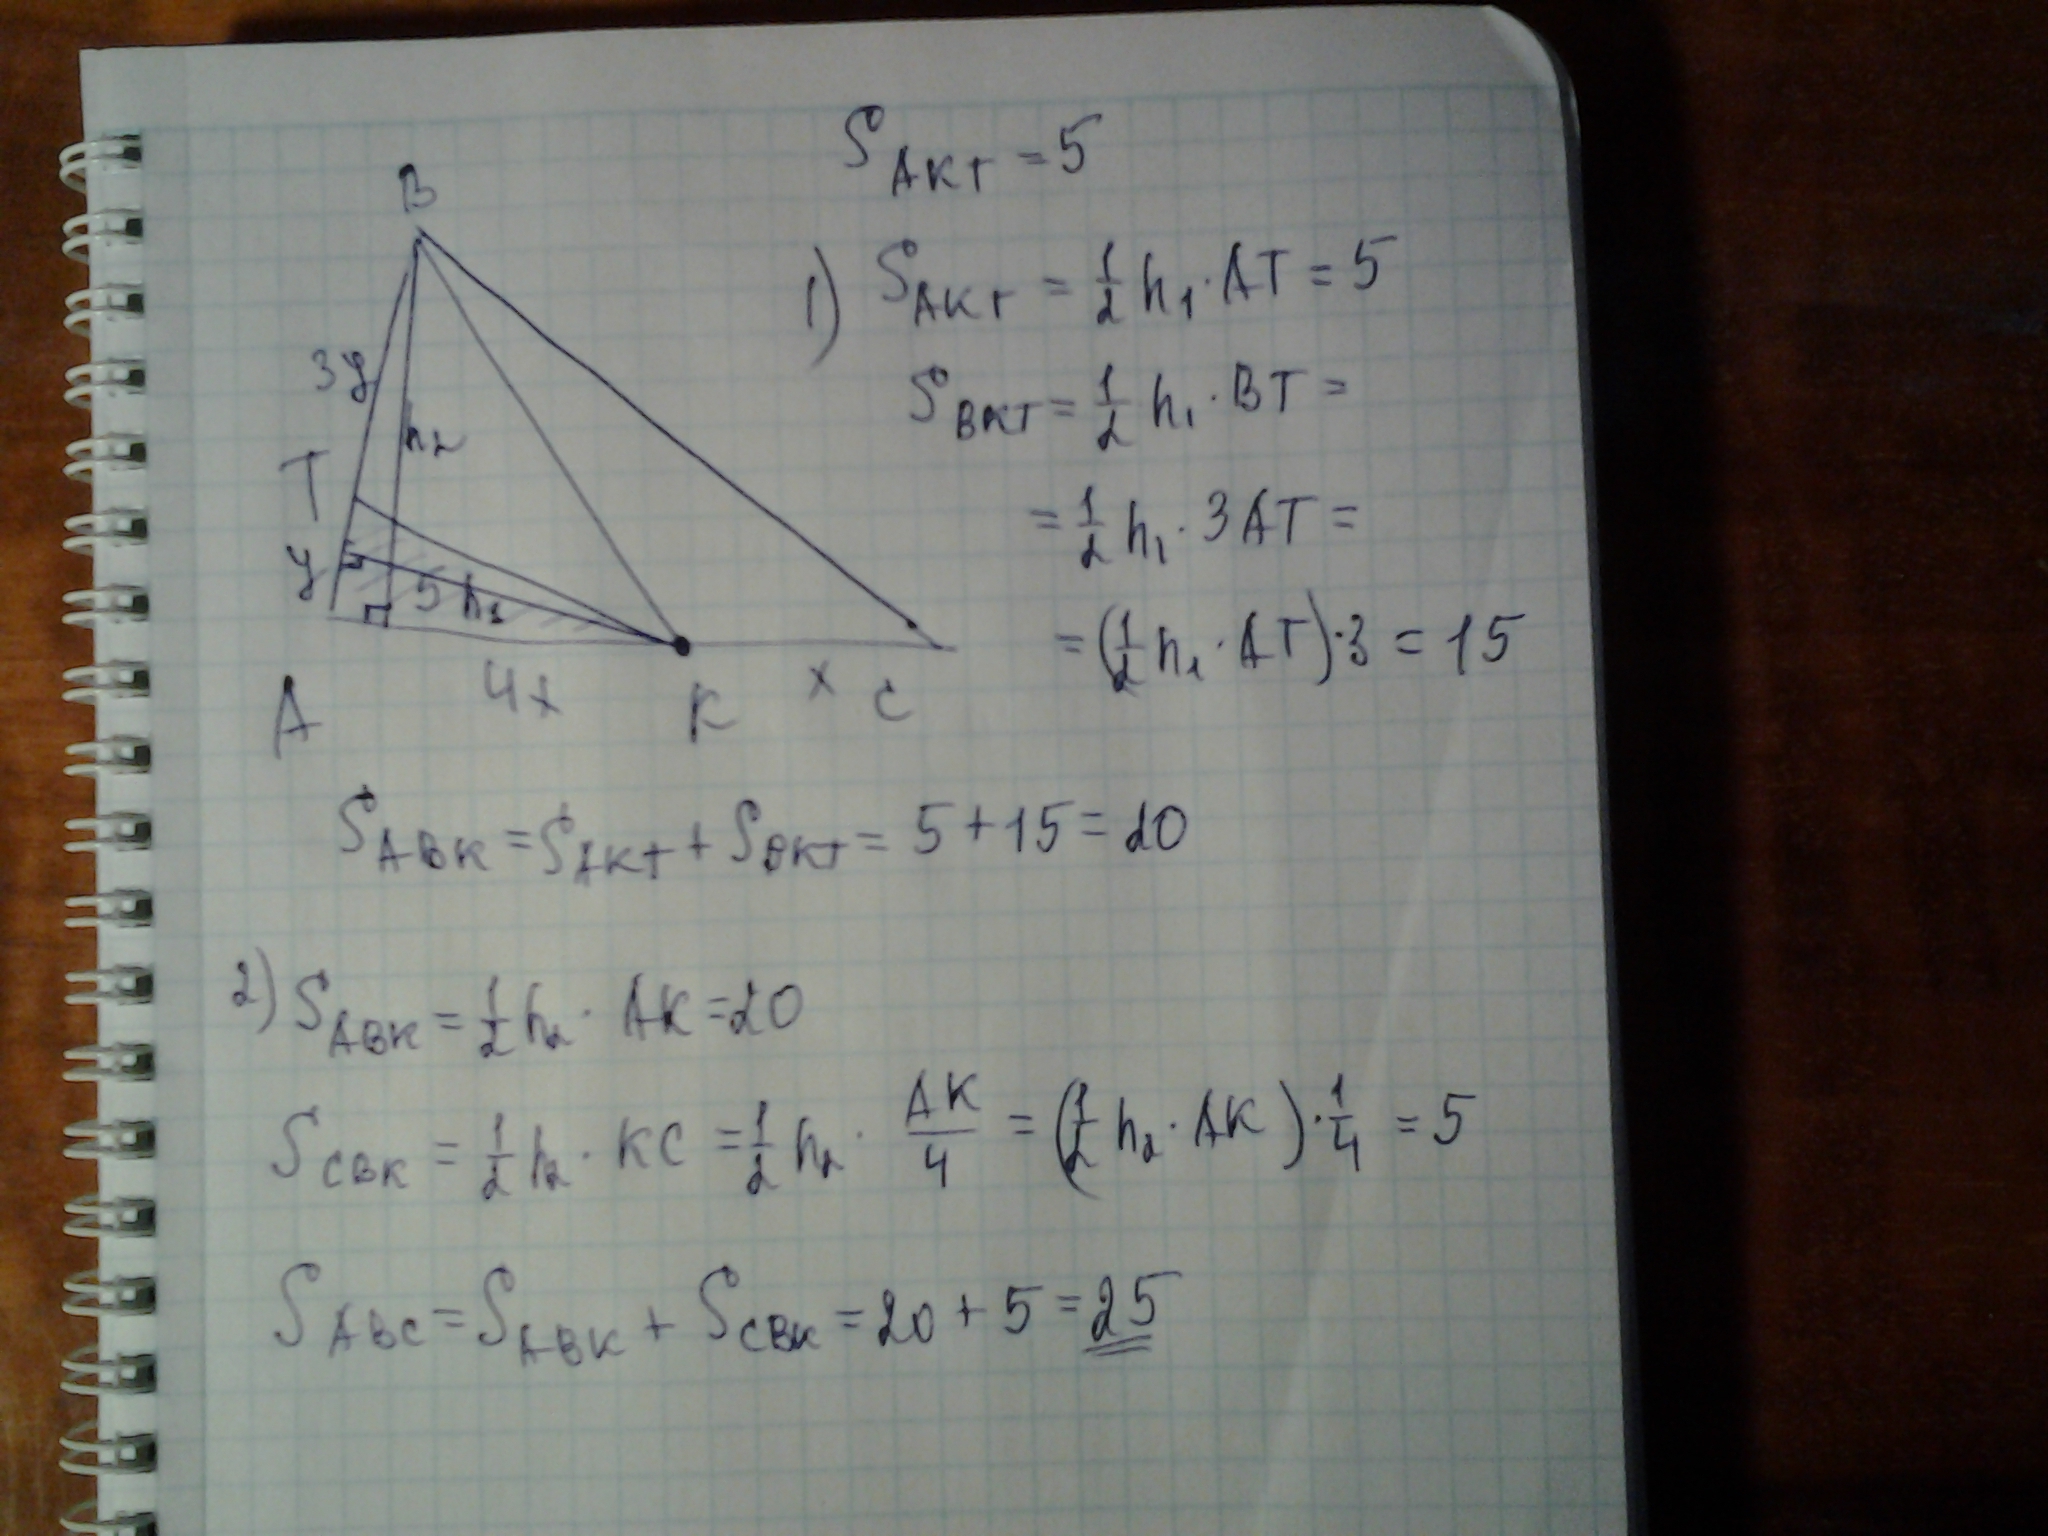 B
3y
h₂
T
y
5 h₁
4x
x
A
K
C
S_AKT = 5
1) S_AKT = 1/2 h₁ · AT = 5
S_BKT = 1/2 h₁ · BT =
= 1/2 h₁ · 3AT =
= (1/2 h₁ · AT) · 3 = 15
S_ABK = S_AKT + S_BKT = 5 + 15 = 20
2) S_ABK = 1/2 h₂ · AK = 20
S_CBK = 1/2 h₂ · KC = 1/2 h₂ · AK/4 = (1/2 h₂ · AK) · 1/4 = 5
S_ABC = S_ABK + S_CBK = 20 + 5 = 25